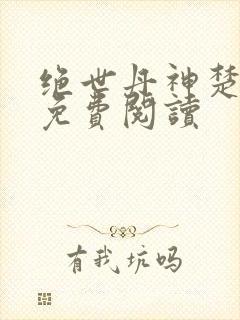 绝世丹神楚
免費閱讀
有我坑吗